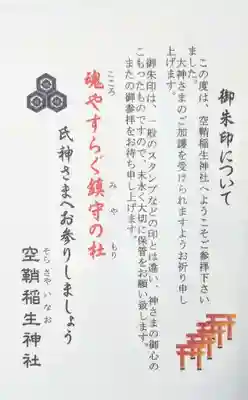 御朱印について
この度は、空鞘稲生神社へようこそご参拝下さい
ました。
大神さまのご加護を受けられますようお祈り申し
上げます。
御朱印は、一般のスタンプなどの印とは違い、神さまの御心の
こもったものですので、末永く大切に保管をお願い致します。
またの御参拝をお待ち申し上げます。
こころ
みや
もり
魂やすらぐ鎮守の杜
氏神さまへお参りしましょう
そら さや いなお
空鞘稲生神社